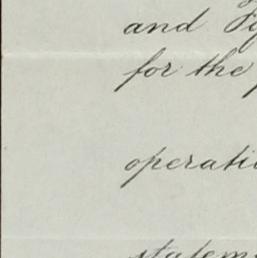 and
for the
operati
statem